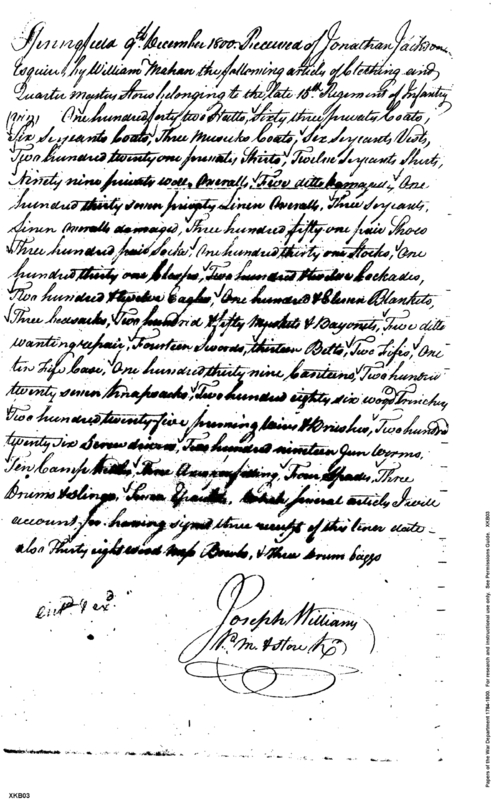 Springfield 9th December 1800. Received of Jonathan Jackson
Esquire by William Mahan the following articles of Clothing and
Quarter Masters Stores belonging to the late 15th Regiment of Infantry
(viz) One hundred forty two Hatts, Sixty three privates Coats,
Six Serjeants Coats, Three Musicks Coats, Six Serjeants Vests,
Two hundred twenty one privates Shirts, Twelve Serjeants Shirts,
Ninety nine privates wool. Overalls, ditto damaged, One
hundred thirty seven privates Linen Overalls, Three Serjeants,
Linen Overalls damaged, Three hundred fifty one pair Shoes
Three hundred pair Socks, One hundred thirty one Stocks, One
hundred thirty one Clasps, Two hundred & twelve Cockades,
Two hundred & twelve Eagles, One hundred & Eleven Blankets,
Three Two hundred & fifty Muskets & Bayonets, Five ditto
wanting repair, Fourteen Swords, thirteen Belts, Two Fifes, One
tin Fife Case, One hundred thirty nine Canteens, Two hundred
twenty seven knapsacks, Two hundred eighty six
Two hundred twenty five priming wires & Brushes, Two hundred
twenty six Screw drivers, Two hundred nineteen Gun Worms,
Ten Camp Kettles, Axes Four Spades, Three
Drums & Slings, Which several articles I will
account for having signed three receipts of this tenor & date -
also Thirty eight wood Bowls, & three drum baggs
Joseph Williams
Q. M. & Store Kr
Papers of the War Department 1784-1800. For research and instructional use only. See Permissions Guide. XKB03
XKB03